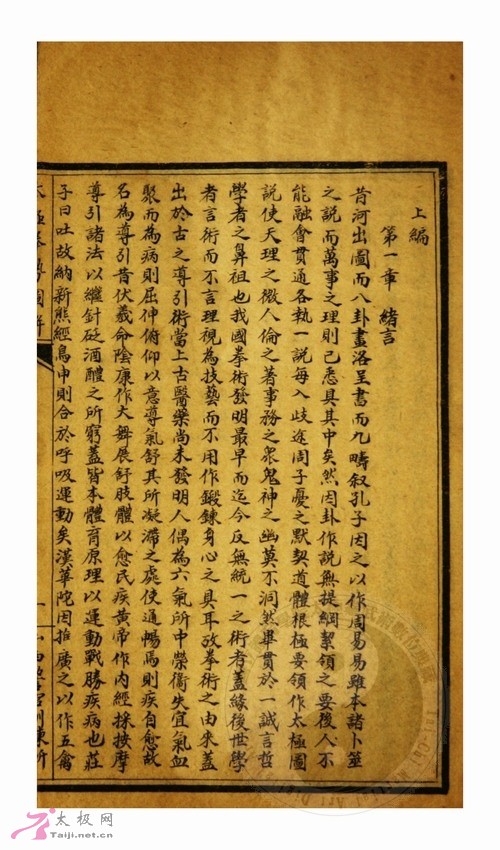 上編
第一章　緒言
昔河出圖而八卦畫洛呈書而九疇叙孔子因之以作周易易雖本諸卜筮
之説而萬事之理則已悉具其中矣然因卦作説無提綱絜領之要後人不
能融會貫通各執一説每入歧途周子憂之默契道體根極要領作太極圖
説使天理之微人倫之著事務之眾鬼神之幽莫不洞然畢貫於一誠言哲
學者之鼻祖也我國拳術發明最早而迄今反無統一之術者蓋緣後世學
者言術而不言理視為技藝而不用作鍛鍊身心之具耳攷拳術之由來蓋
出於古之導引術當上古醫藥尚未發明人偶為六氣所中榮衞失宜氣血
聚而為病則屈伸俯仰以意導氣舒其所凝滯之處使通暢焉則疾自愈故
名為導引昔伏羲命陰康作大舞展舒肢體以愈民疾黃帝作内經採按摩
導引諸法以繼針砭酒醴之所窮蓋皆本體育原理以運動戰勝疾病也莊
子曰吐故納新熊經鳥申則合於呼吸運動矣漢華陀因推廣之以作五禽
太极网
Taiji.net.cn